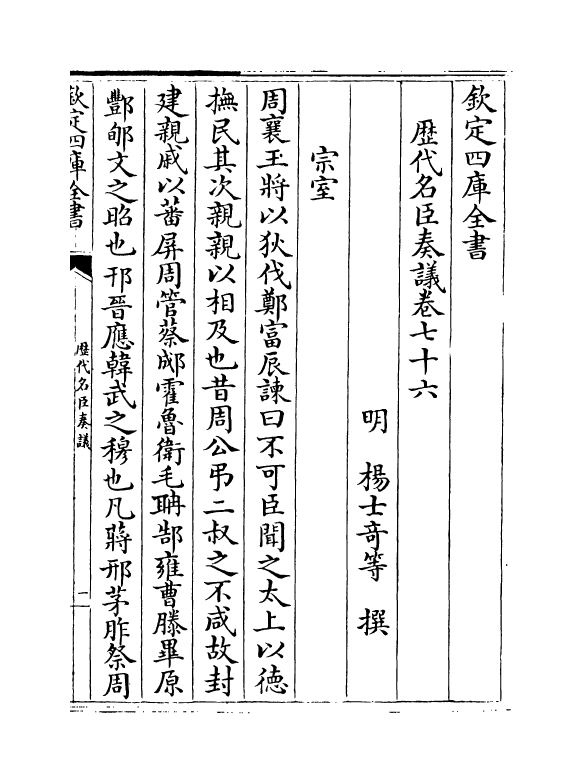 欽定四庫全書
歴代名臣奏議卷七十六
明　楊士竒等　撰
宗室
周襄王將以狄伐鄭富辰諫曰不可臣聞之太上以德
撫民其次親親以相及也昔周公弔二叔之不咸故封
建親戚以蕃屏周管蔡郕霍魯衛毛聃郜雍曹滕畢原
酆郇文之昭也邘晉應韓武之穆也凡蔣邢茅胙祭周
欽定四庫全書
歴代名臣奏議
一